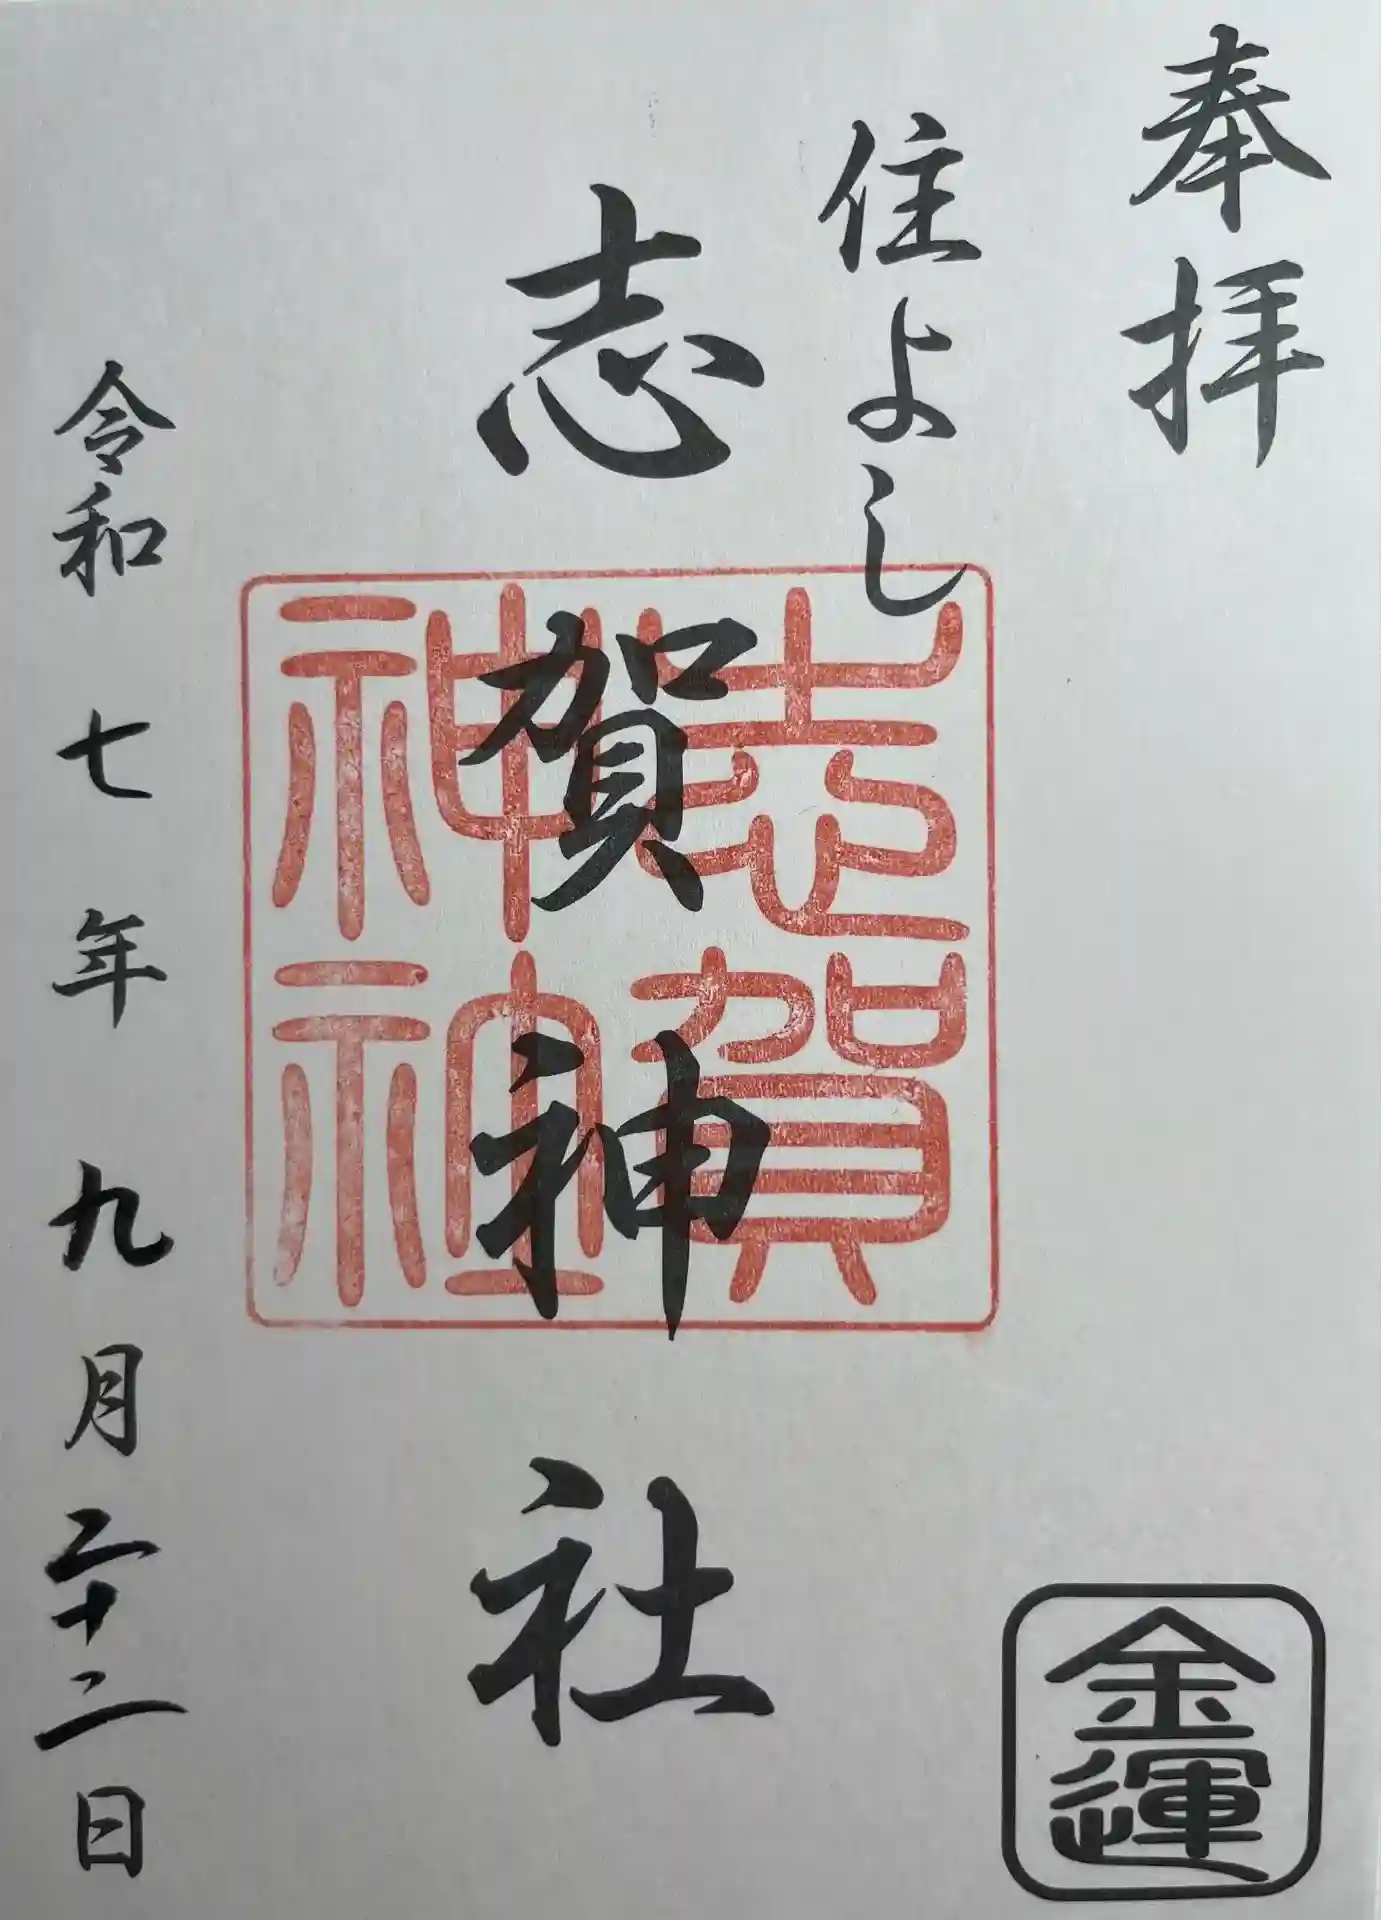 奉拝
金運
住よし
志賀神社
志賀神社
令和七年九月二十二日